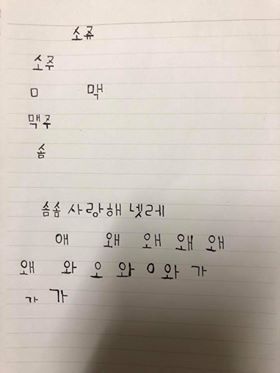 소쥬
소주
ㅁ 맥
맥주
솜
솜솜 사랑해 넷레
애 왜 오애 왜 왜
왜 와 오 와 ㅇ와 가
가 가